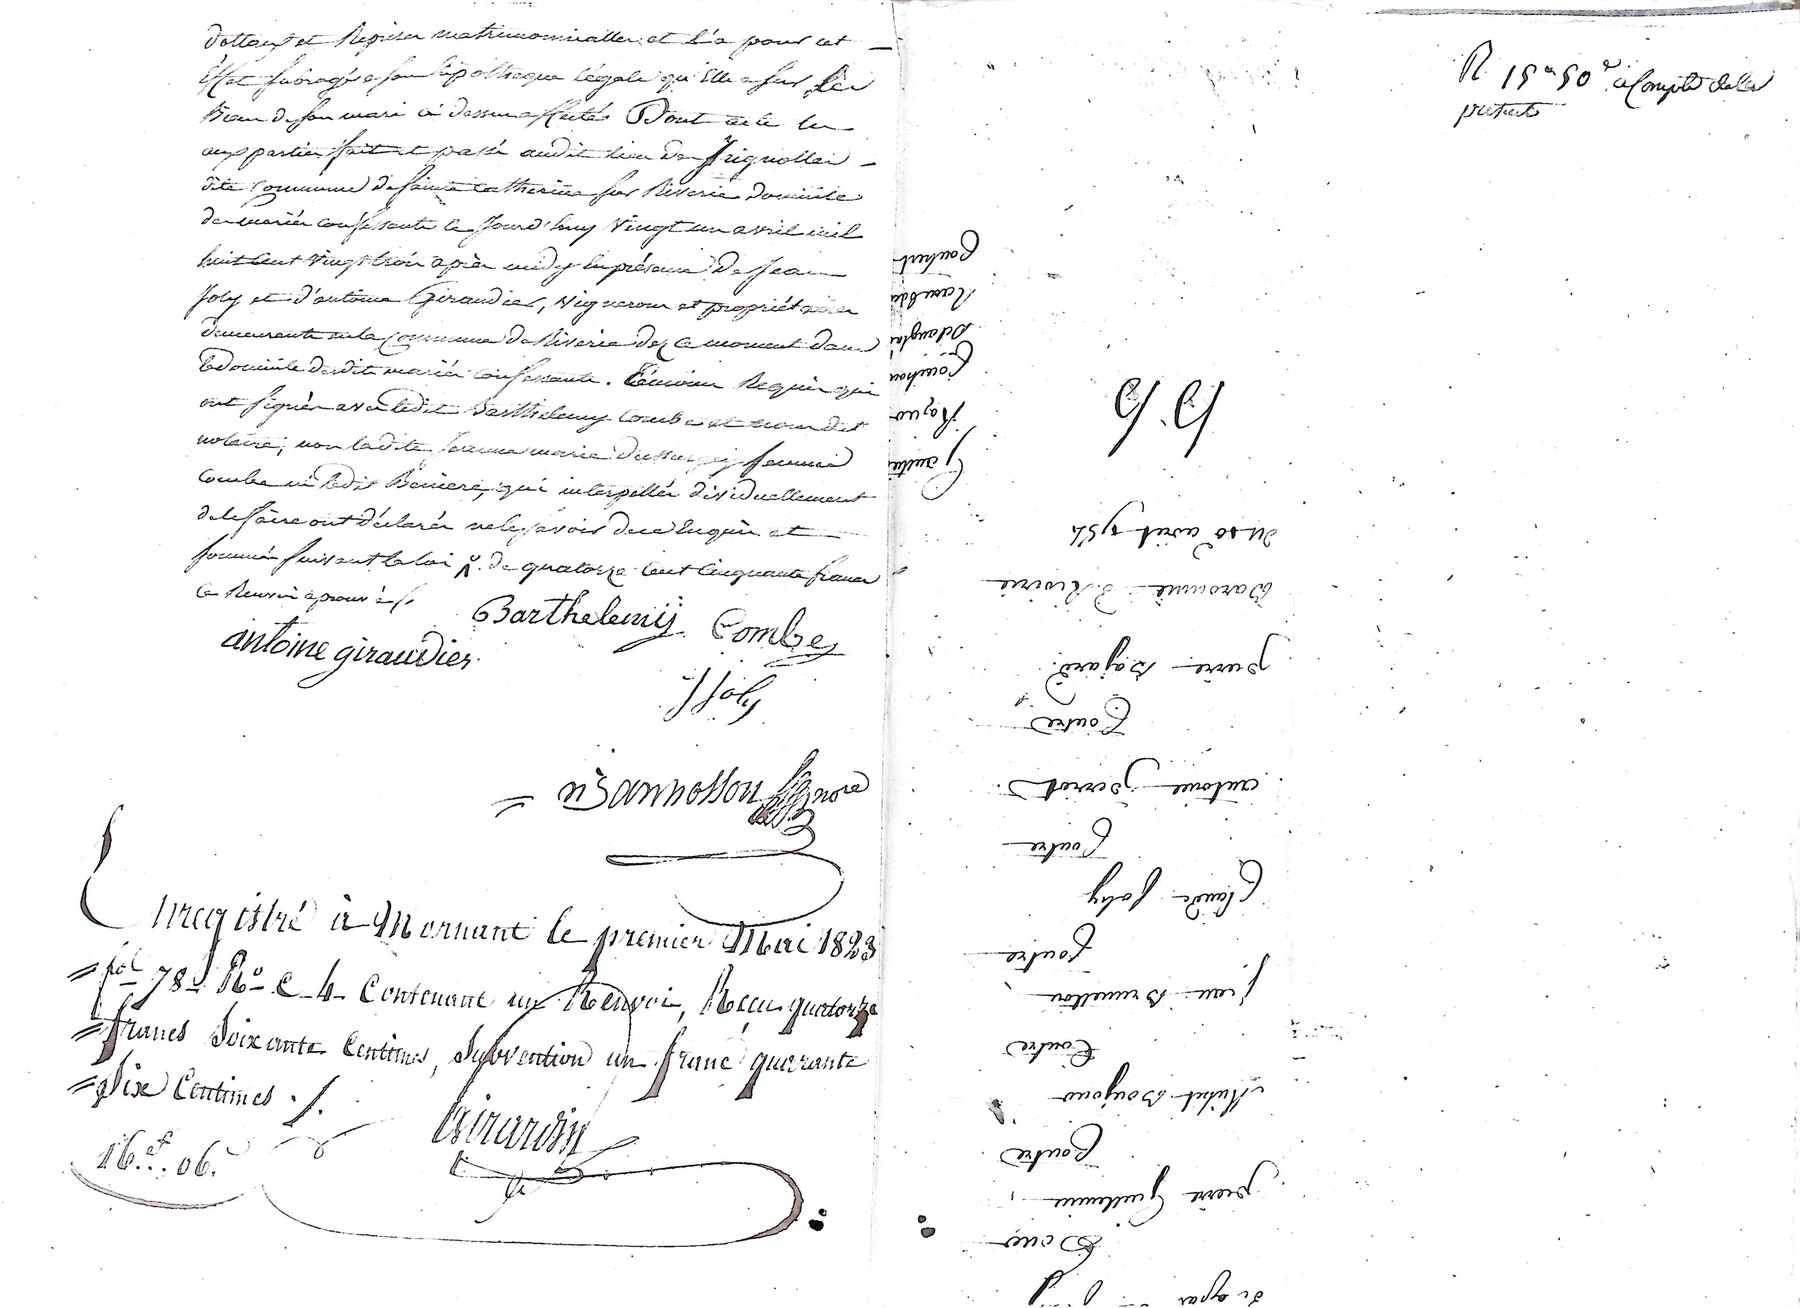 dottaux et Reprises matrimonialles et l'a pour cet
Effet subrogée a son hipotheque légale qu'Elle a sur Les
Biens de son mari ci dessus affectés Dont acte lu
aux parties fait et passé audit lieu de Frignollai
dite Commune de sainte catherine sur Riverie domicile
des mariés confessants ce Jourd'huy vingt un avril mil
huit Cent vingt trois après midy En présence De Jean
Joly et d'antoine Giraudier, vignerons et propriétaires
demeurants en la Commune De Riverie dez ce moment dans
Le domicile desdits mariés confessants. témoins Requis qui
ont signés avec ledit Barthelemy Combe et nous dit
notaire; non ladite Jeanne marie Dussurgey femme
Combe ni ledit Beniere, qui interpellés dividuellement
de le faire ont déclarés ne le savoir de ce Enquis et
sommés suivant la loi de quatorze Cent Cinquante francs
Ce Renvoi aprouvé
Barthelemij Combe
antoine giraudier
J Joly
nore
Enregistré à Mornant le premier Mai 1823
fol 78 Ro C 4 Contenant un Renvoi, Recu quatorze
francs Soixante Centimes, Subvention un franc quarante
Six Centimes
Girardin
16 f. 06.
R 15 50 a Compte de la
presente
Gautier
Coulous
Ramb
du 10 avril 1754
Baronnie de Riverie
pierre Bajard
Contre
antoine
Contre
Claude Joly
Contre
Jean
Contre
Contre
pierre Guillermin